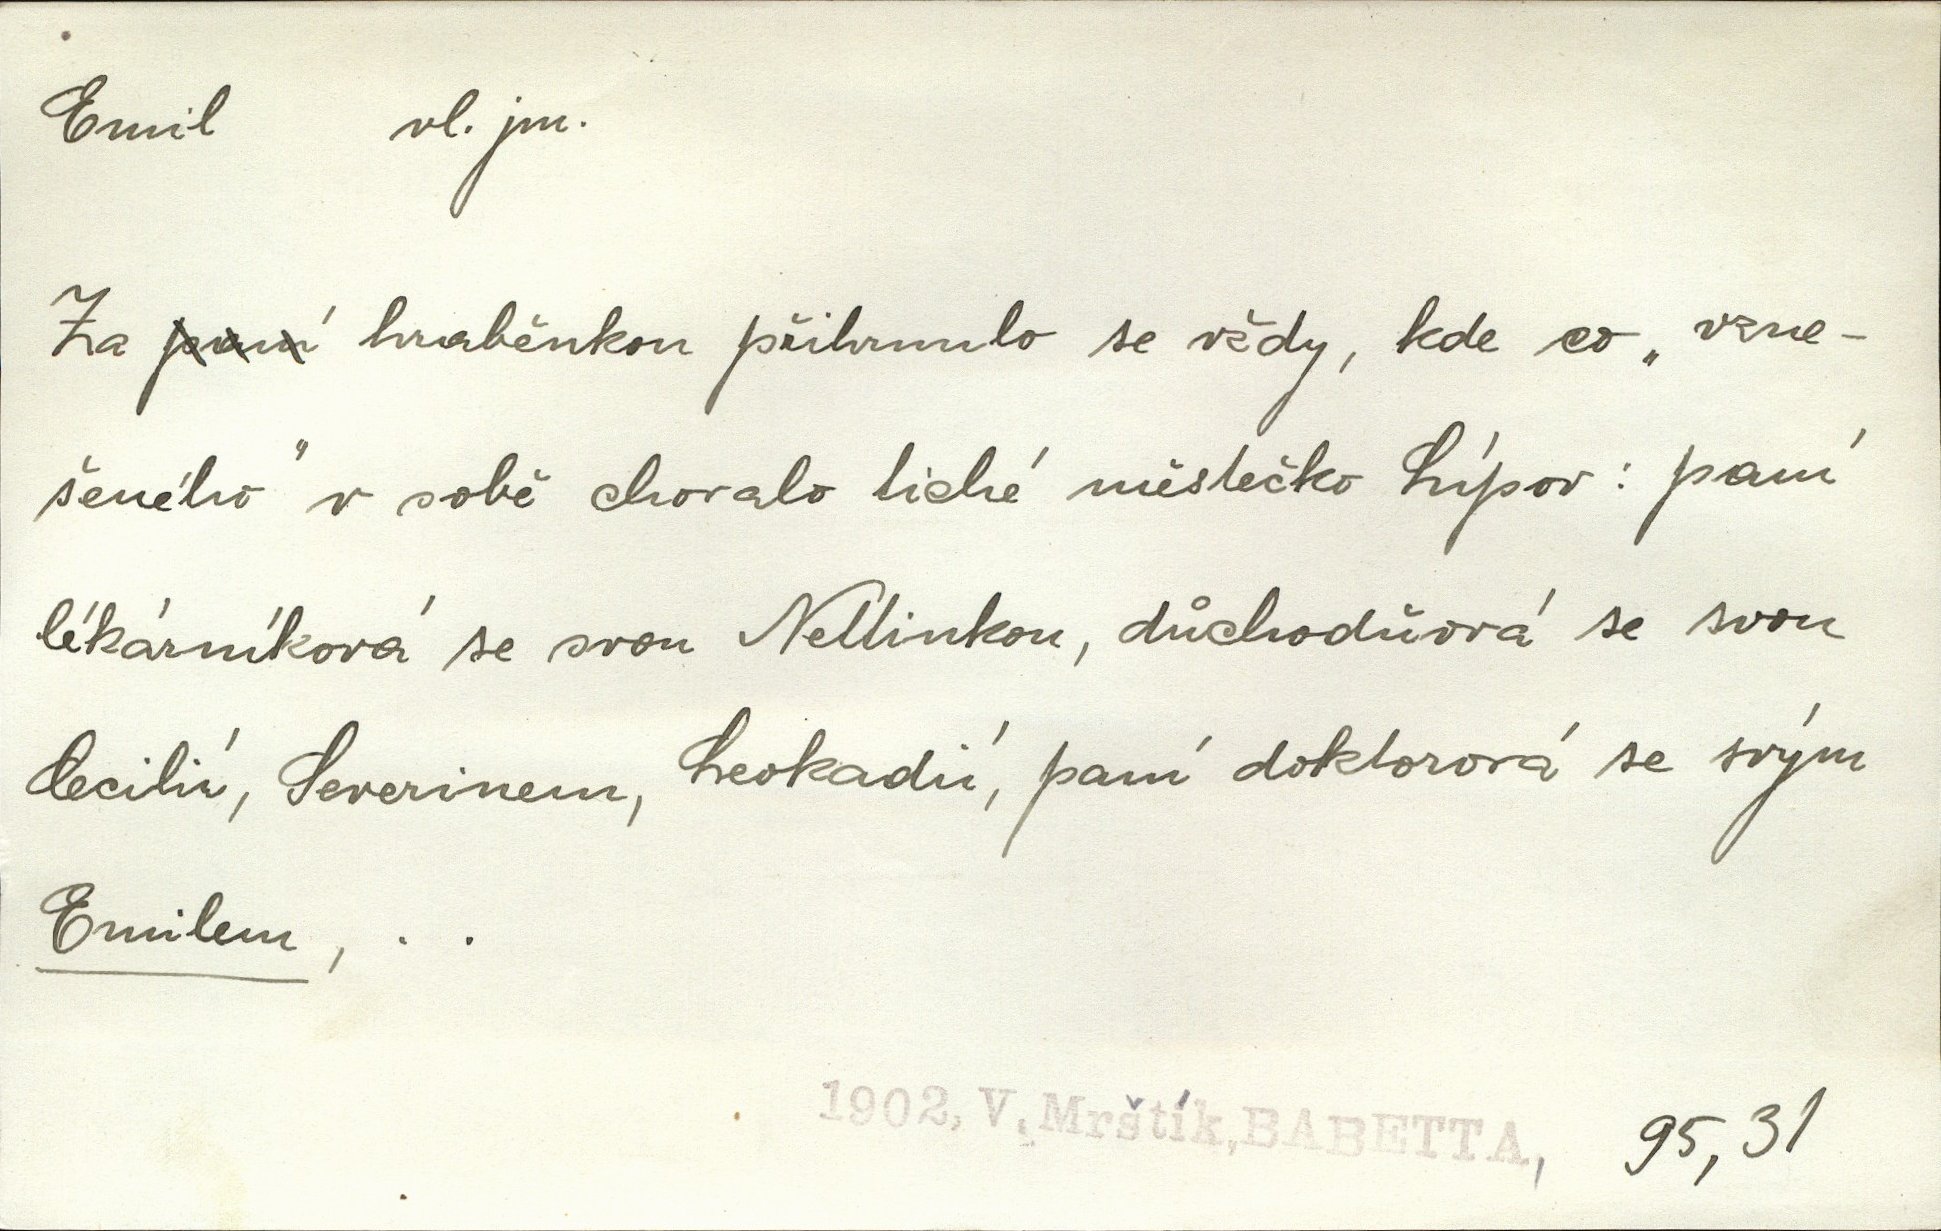 Emil vl. jm.
Za paní hraběnkou přihrnulo se vždy, kde co „vzne-
šeného" v sobě chovalo tiché městečko Lípov: paní
lékárníková se svou Nettinkou, důchodňová se svou
Cecilií, Severinem, Leokadií, paní doktorová se svým
Emilem, . .
1902, V. Mrštík, BABETTA, 95,31